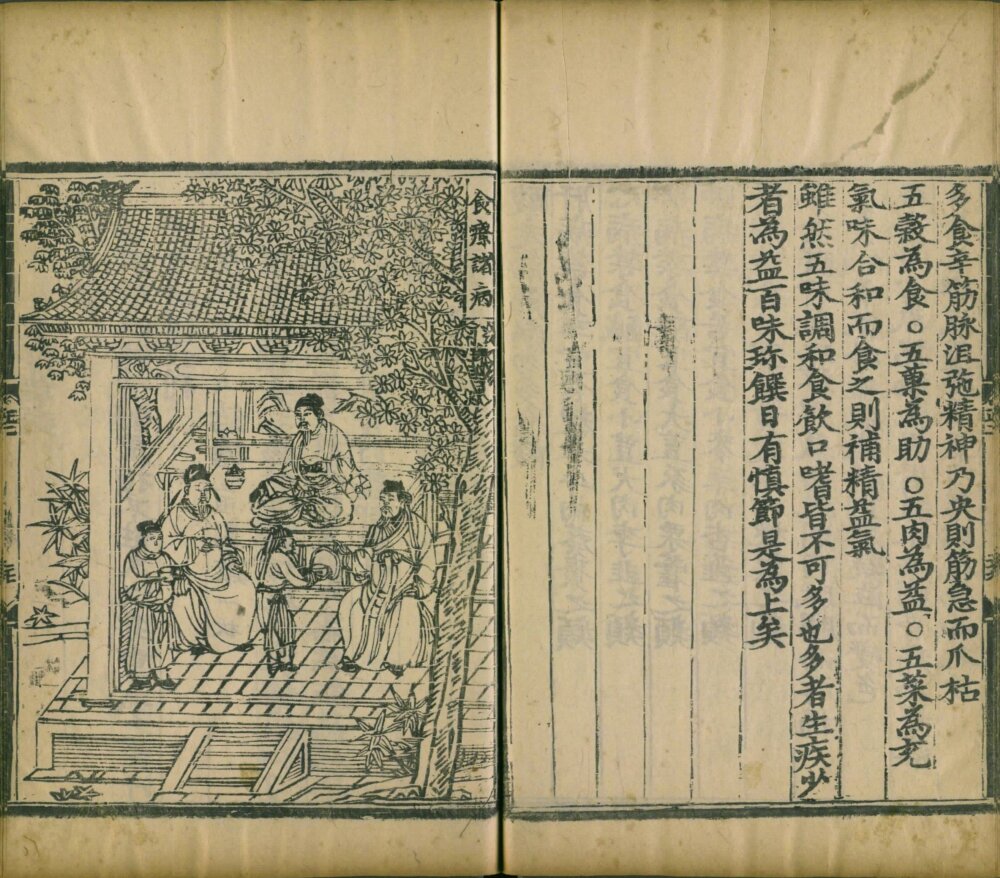 多食辛筋脉沮弛精神乃央則筋急而爪枯
五穀為食○五菓為助○五肉為益○五菜為充
氣味合和而食之則補精益氣
雖然五味調和食飲口嗜皆不可多也多者生疾少
者為益百味珍饌日有慎節是為上矣
食療諸病